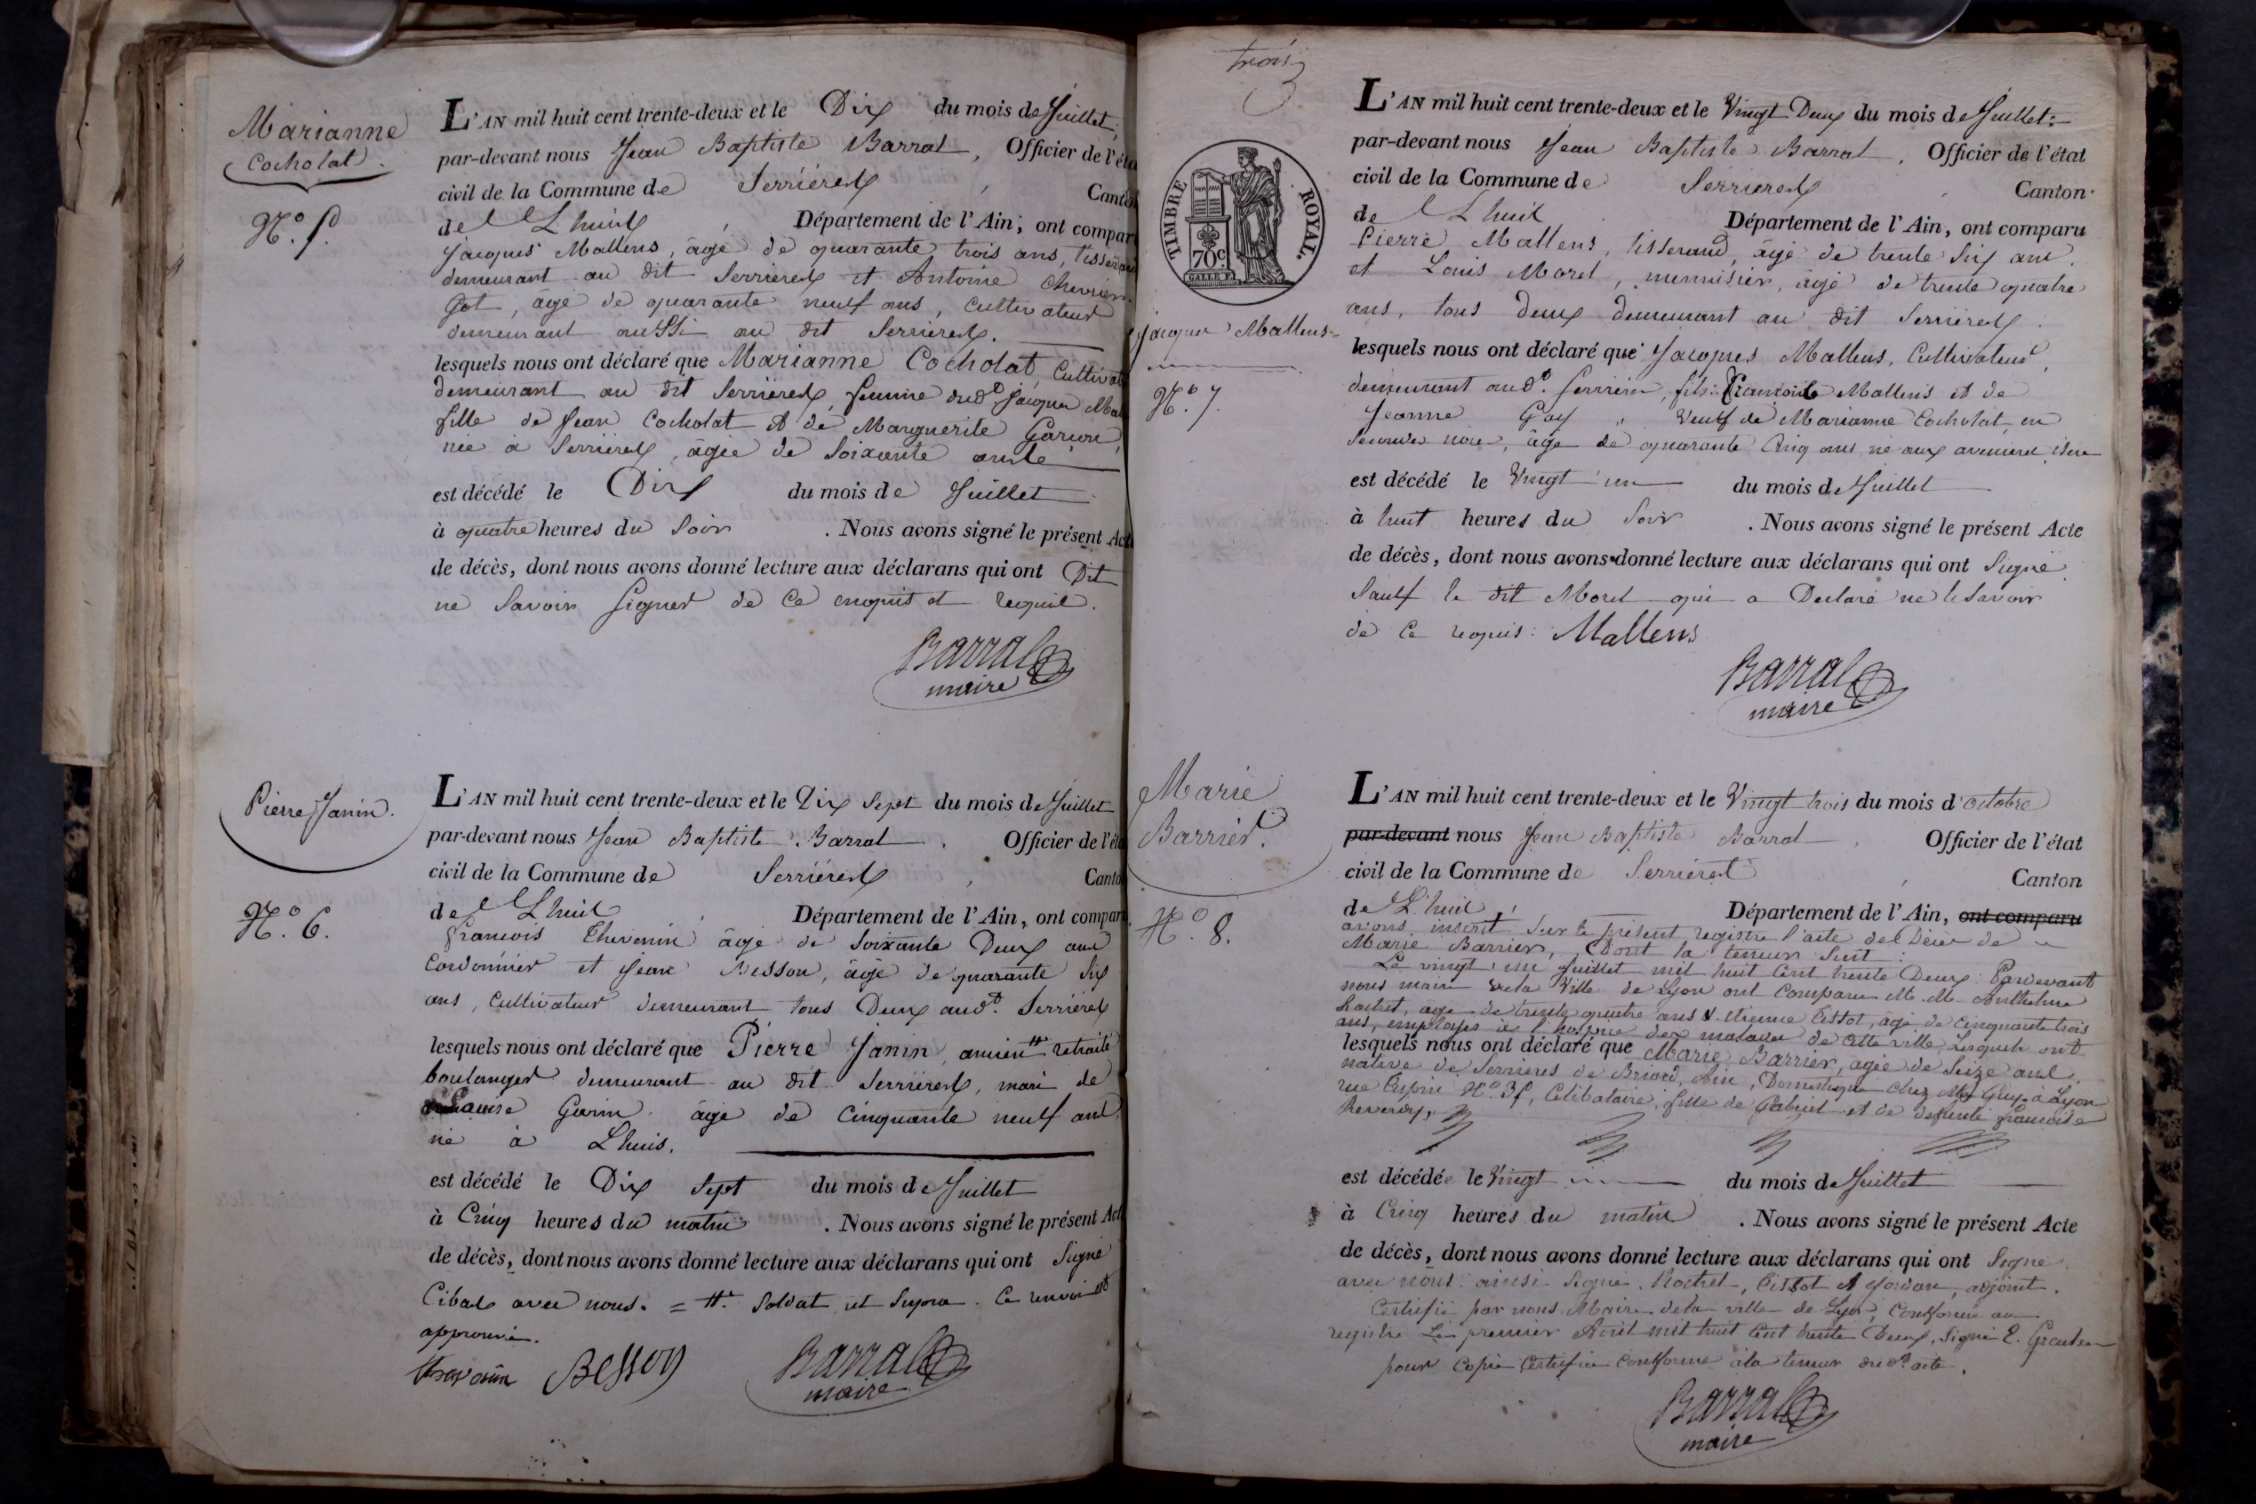 Marianne
Cocholat.
N.º 5.
L'AN mil huit cent trente-deux et le Dix du mois de Juillet,
par-devant nous Jean Baptiste Barral, Officier de l'éta
civil de la Commune de Serrieres, Canton
de Lhuis, Département de l'Ain, ont compar
Jacques Mallens, âgé de quarante trois ans, Tisserand
demeurant au dit Serrieres et Antoine Chevrier
Got, âgé de quarante neuf ans, Cultivateur
demeurant aussi au dit Serrieres.
lesquels nous ont déclaré que Marianne Cocholat, Cultivat
demeurant au dit Serrieres, femme dud. Jacques Mal
fille de Jean Cocholat et de Marguerite
née à Serrieres, âgée de Soixante
est décédé le Dix du mois de Juillet
à quatre heures du Soir. Nous avons signé le présent Act
de décès, dont nous avons donné lecture aux déclarans qui ont Dit
ne Savoir Signer de ce enquis et requis.
Barral
maire
Pierre Janin.
N.º 6.
L'AN mil huit cent trente-deux et le Dix Sept du mois de Juillet
par-devant nous Jean Baptiste Barral, Officier de l'éta
civil de la Commune de Serrieres, Canto
de Lhuis, Département de l'Ain, ont compar
francois Thevenin âgé de Soixante Deux ans
Cordonnier et Jean Besson, âgé de quarante Six
ans, Cultivateur demeurant tous Deux aud. Serrieres
lesquels nous ont déclaré que Pierre Janin, ancien # retraité
boulanger demeurant au dit Serrieres, mari de
Garin âgé de Cinquante neuf ans
né à Lhuis.
est décédé le Dix Sept du mois de Juillet
à Cinq heures du matin. Nous avons signé le présent Act
de décès, dont nous avons donné lecture aux déclarans qui ont Signé
avec nous. = #. Soldat Ce renvoi est
approuvé.
Besson Barral
maire
trois
3
TIMBRE ROYAL.
70c
Jacques Mallens
N.º 7.
L'AN mil huit cent trente-deux et le Vingt Deux du mois de Juillet
par-devant nous Jean Baptiste Barral, Officier de l'état
civil de la Commune de Serrieres, Canton
de Lhuis Département de l'Ain, ont comparu
Pierre Mallens, tisserand, âgé de trente Six ans
et Louis Morel, menuisier, âgé de trente quatre
ans, tous deux demeurant au dit Serrieres.
lesquels nous ont déclaré que Jacques Mallens, Cultivateur,
demeurant aud. Serrieres, fils Mallens et de
Jeanne Gay, veuf de Marianne Cocholat, en
âgé de quarante Cinq ans né aux avenieres, Isere
est décédé le Vingt un du mois de Juillet
à huit heures du Soir. Nous avons signé le présent Acte
de décès, dont nous avons donné lecture aux déclarans qui ont Signé
Sauf le dit Morel qui a Declaré ne le Savoir
de ce requis: Mallens
Barral
maire
Marie
Barrier.
N.º 8.
L'AN mil huit cent trente-deux et le Vingt trois du mois d'octobre
par-devant nous Jean Baptiste Barral, Officier de l'état
civil de la Commune de Serrieres, Canton
de Lhuis, Département de l'Ain, ont comparu
avons inscrit Sur le présent registre l'acte de Décès de
Marie Barrier, Dont la teneur Suit:
Le vingt un Juillet mil huit Cent trente Deux Pardevant
nous maire de la Ville de Lyon ont Comparu M. M. Anthelme
Rochet, âgé de trente quatre ans & Etienne Cissot, âgé de cinquante trois
ans, employés à l'hospice des malades de cette ville, lesquels ont
lesquels nous ont déclaré que Marie Barrier, âgée de Seize ans
native de Serrieres de Briord, Ain, Domestique chez Mr Guy à Lyon
rue N.º 35, Célibataire, fille de Gabriel et de defunte francoise
Reverdy,
est décédée le Vingt un du mois de Juillet
à Cinq heures du matin. Nous avons signé le présent Acte
de décès, dont nous avons donné lecture aux déclarans qui ont Signé
avec nous ainsi Signé Rochet, Cissot et Jordan, adjoint.
Certifié par nous Maire de la ville de Lyon, Conforme au
registre Le premier Août mil huit Cent trente Deux, Signé E.
pour Copie Certifiée Conforme à la teneur dud. acte.
Barral
maire